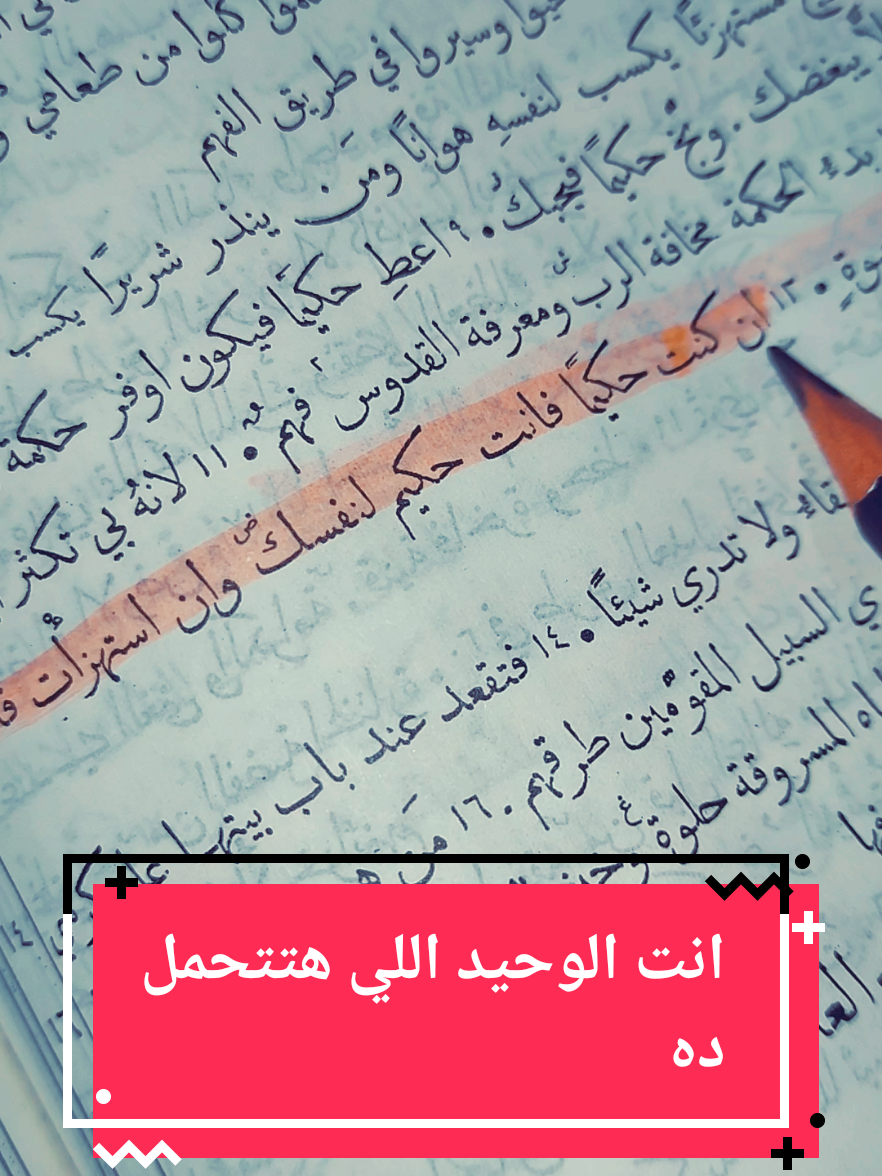 كلوا من طعامي
وسيروا في طريق الفهم
مستهزئًا يكسب لنفسهِ هوانًا ومن ينذر شريرًا يكسب
يبغضك . وبّخ حكيمًا فيحبك . ٩ اعطِ حكيمًا فيكون اوفر حكمة
بدء الحكمة مخافة الرب ومعرفة القدوس فهم . ١١ لانهُ بي تكثر
١٢ ان كنت حكيمًا فانت حكيم لنفسك وان استهزأت
ولا تدري شيئًا . ١٤ فتقعد عند باب بيتها
السبيل المقوّمين طرقهم . ١٦ مَن
المسروقة حلوة
انت الوحيد اللي هتتحمل
ده